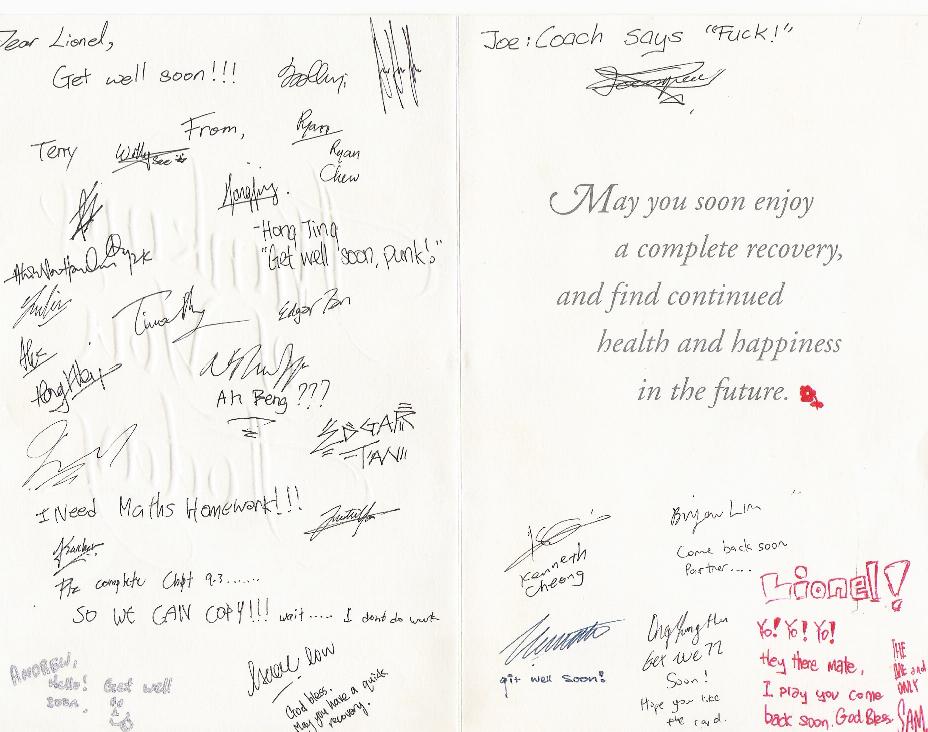 Dear Lionel,
Get well soon!!!
From,
Terry
Ryan
Ryan
Chew
-Hong Ting
"Get well soon, punk!"
Timothy
Edgar Tan
Ah Beng???
EDGAR
TAN
I Need Maths Homework!!!
Plz complete Chpt 9.3......
SO WE CAN COPY!!! wait..... I dont do work
ANDREW,
Hello! Get well
soon.
Isaac low
God bless.
May you have a quick
recovery.
Joe: Coach says "Fuck!"
May you soon enjoy
a complete recovery,
and find continued
health and happiness
in the future.
Kenneth
Cheong
Binjew Lim
Come back soon
Partner....
git well soon!
Get well
Soon!
Hope you like
the card.
Lionel!
Yo! Yo! Yo!
Hey there mate,
I pray you come
back soon. God Bless
THE
ONE and
ONLY
SAM